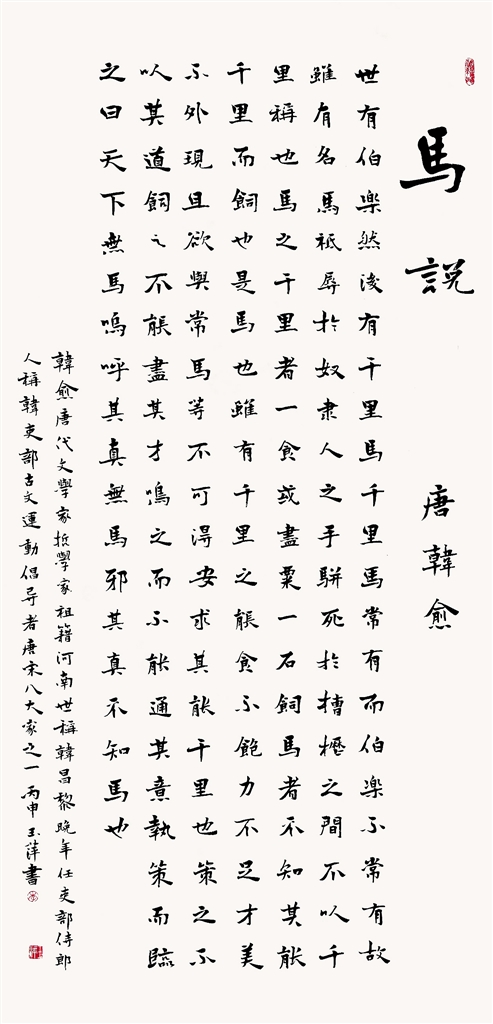 馬說
唐韓愈
世有伯樂然後有千里馬千里馬常有而伯樂不常有故
雖有名馬祗辱於奴隶人之手駢死於槽櫪之間不以千
里稱也馬之千里者一食或盡粟一石飼馬者不知其能
千里而飼也是馬也雖有千里之能食不飽力不足才美
不外現且欲與常馬等不可得安求其能千里也策之不
以其道飼之不能盡其才鳴之而不能通其意執策而臨
之曰天下無馬嗚呼其真無馬邪其真不知馬也
韓愈唐代文學家哲學家祖籍河南世稱韓昌黎晚年任吏部侍郎
人稱韓吏部古文運動倡导者唐宋八大家之一丙申玉萍書